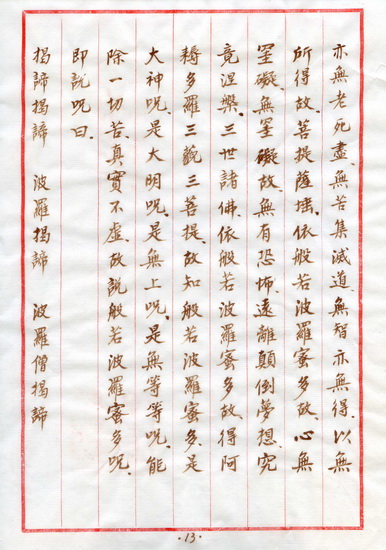 亦無老死盡、無苦集滅道、無智亦無得、以無
所得故、菩提薩埵、依般若波羅蜜多故、心無
罣礙、無罣礙故、無有恐怖、遠離顛倒夢想、究
竟涅槃、三世諸佛、依般若波羅蜜多故、得阿
耨多羅三藐三菩提、故知般若波羅蜜多、是
大神咒、是大明咒、是無上咒、是無等等咒、能
除一切苦、真實不虛、故說般若波羅蜜多咒、
即說咒曰、
揭諦揭諦 波羅揭諦 波羅僧揭諦
·13·